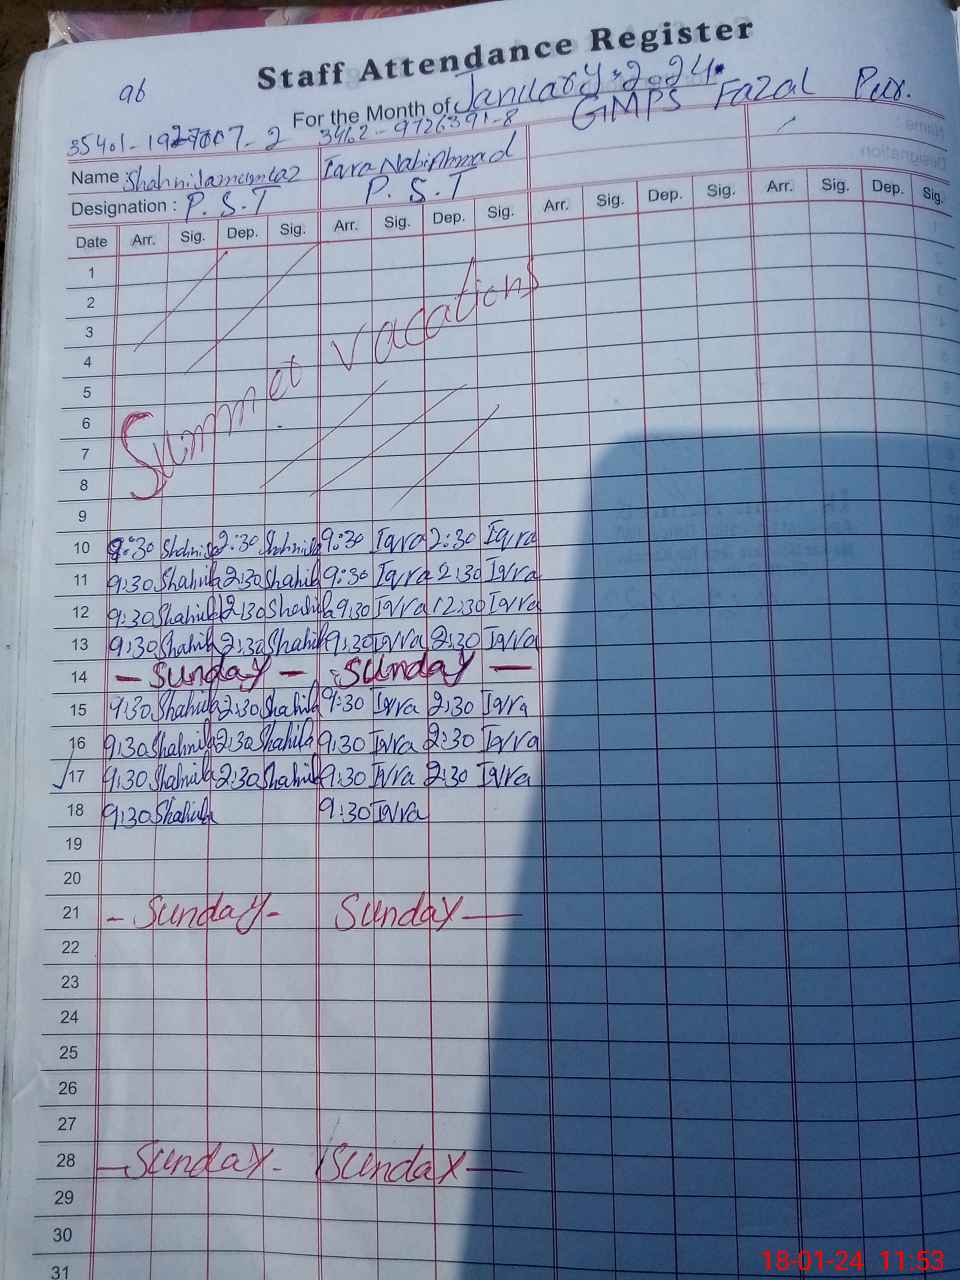 Staff Attendance Register
96
For the Month of January 2024.
GMPS Fazal Pur.
3462-9726391-8
Name : Iqra Nabi Ahmad
Designation : P.S.T P.S.T
Date Arr. Sig. Dep. Sig. Arr. Sig. Dep. Sig. Arr. Sig. Dep. Sig. Arr. Sig. Dep. Sig.
1
2
3
4
5
6
7
8
Summer vacations
9
10 9:30 Shahnila 2:30 Shahnila 9:30 Iqra 2:30 Iqra
11 9:30 Shahnila 2:30 Shahila 9:30 Iqra 2:30 Iqra
12 9:30 Shahnila 12:30 Shahila 9:30 Iqra 12:30 Iqra
13 9:30 Shahnila 2:30 Shahnila 9:30 Iqra 2:30 Iqra
14 - Sunday - Sunday -
15 9:30 Shahnila 2:30 Shahila 9:30 Iqra 2:30 Iqra
16 9:30 Shahnila 2:30 Shahila 9:30 Iqra 2:30 Iqra
17 9:30 Shahnila 2:30 Shahnila 9:30 Iqra 2:30 Iqra
18 9:30 Shahnila 9:30 Iqra
19
20
21 - Sunday - Sunday -
22
23
24
25
26
27
28 - Sunday - Sunday -
29
30
31
18-01-24 11:53